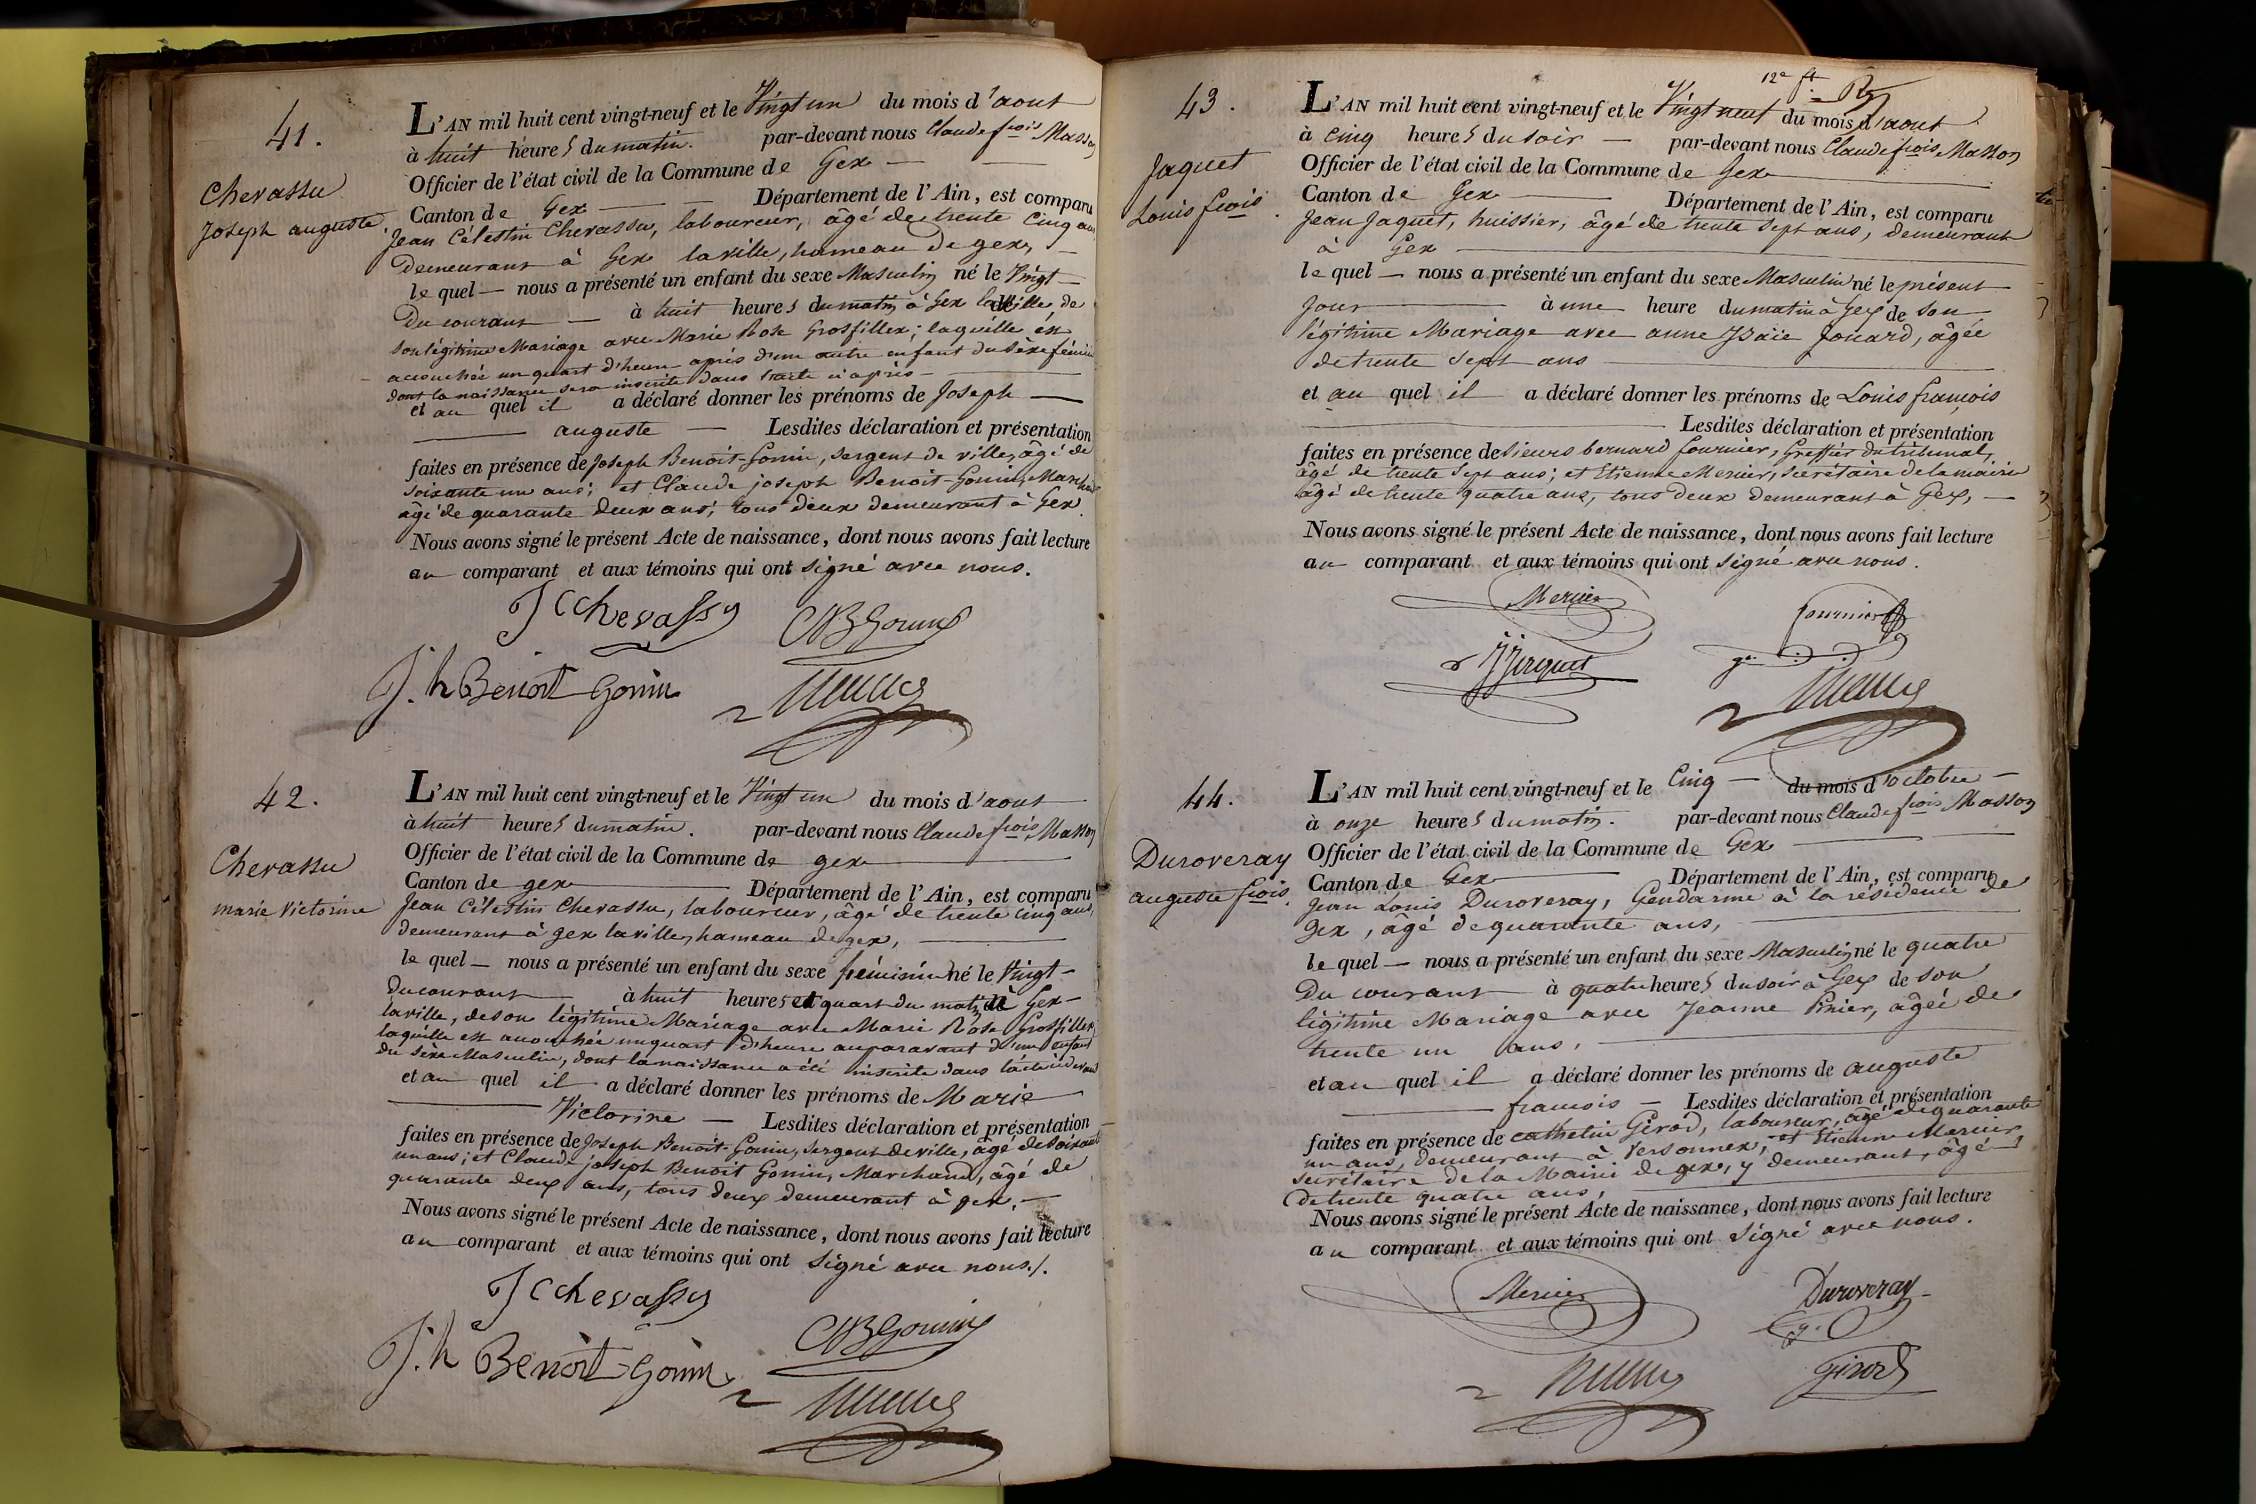 41.
Chevassu
Joseph auguste.
L'AN mil huit cent vingt-neuf et le Vingt un du mois d'aout
à huit heures du matin. par-devant nous Claude frois Masson
Officier de l'état civil de la Commune de Gex
Canton de Gex Département de l'Ain, est comparu
Jean Célestin Chevassu, laboureur, âgé de trente cinq ans
demeurant à Gex la ville, hameau de gex,
le quel nous a présenté un enfant du sexe Masculin né le Vingt
du courant à huit heures du matin à Gex la ville, de
son légitime Mariage avec Marie Rose Grosfillex; laquelle est
accouchée un quart d'heure après d'un autre enfant du sèxe féminin
dont la naissance sera inscrite dans l'acte ci après
et au quel il a déclaré donner les prénoms de Joseph
auguste Lesdites déclaration et présentation
faites en présence de Joseph Benoit-Gonin, sergent de ville, âgé de
soixante un ans; et Claude joseph Benoit-Gonin, Marchand
âgé de quarante deux ans; tous deux demeurant à Gex.
Nous avons signé le présent Acte de naissance, dont nous avons fait lecture
au comparant et aux témoins qui ont signé avec nous.
J C Chevassu
CJB Gonin
J.h Benoit Gonin
42.
Chevassu
marie Victorine
L'AN mil huit cent vingt-neuf et le Vingt un du mois d'aout
à huit heures du matin. par-devant nous Claude frois Masson
Officier de l'état civil de la Commune de gex
Canton de gex Département de l'Ain, est comparu
Jean Célestin Chevassu, laboureur, âgé de trente cinq ans,
demeurant à gex la ville, hameau de gex,
le quel nous a présenté un enfant du sexe féminin né le Vingt
du courant à huit heures et quart du matin à Gex
la ville, de son légitime Mariage avec Marie Rose Grosfillex,
laquelle est accouchée un quart d'heure auparavant d'un enfant
du sèxe Masculin, dont la naissance a été inscrite dans l'acte ci devant
et au quel il a déclaré donner les prénoms de Marie
Victorine Lesdites déclaration et présentation
faites en présence de Joseph Benoit-Gonin, sergent de ville, âgé de soixante
un ans; et Claude joseph Benoit Gonin, Marchand, âgé de
quarante deux ans, tous deux demeurant à gex.
Nous avons signé le présent Acte de naissance, dont nous avons fait lecture
au comparant et aux témoins qui ont signé avec nous./.
J C Chevassu
CJB Gonin
J.h Benoit-Gonin
43.
Jaquet
Louis frois.
12e ft.
L'AN mil huit cent vingt-neuf et le Vingt neuf du mois d'aout
à cinq heures du soir par-devant nous Claude frois Masson
Officier de l'état civil de la Commune de Gex
Canton de Gex Département de l'Ain, est comparu
Jean Jaquet, huissier, âgé de trente sept ans, demeurant
à Gex
le quel nous a présenté un enfant du sexe Masculin né le présent
jour à une heure du matin à Gex de son
légitime Mariage avec anne Isaïe fouard, âgée
de trente sept ans
et au quel il a déclaré donner les prénoms de Louis françois
Lesdites déclaration et présentation
faites en présence de sieurs bernard fournier, Greffier du tribunal,
âgé de trente sept ans; et Etienne Mercier, secrétaire de la mairie
âgé de trente quatre ans, tous deux demeurant à Gex,
Nous avons signé le présent Acte de naissance, dont nous avons fait lecture
au comparant et aux témoins qui ont signé avec nous.
Mercier
fournier
JJaquet
44.
Duroveray
auguste frois.
L'AN mil huit cent vingt-neuf et le Cinq du mois d'octobre
à onze heures du matin. par-devant nous Claude frois Masson
Officier de l'état civil de la Commune de Gex
Canton de Gex Département de l'Ain, est comparu
Jean Louis Duroveray, Gendarme à la résidence de
Gex, âgé de quarante ans,
le quel nous a présenté un enfant du sexe Masculin né le quatre
du courant à quatre heures du soir à Gex de son
légitime Mariage avec Jeanne Prier, âgée de
trente un ans,
et au quel il a déclaré donner les prénoms de auguste
francois Lesdites déclaration et présentation
faites en présence de cathelin Girod, laboureur, âgé de quarante
un ans, demeurant à Versonnex, et Etienne Mercier
secrétaire de la Mairie de gex, y demeurant, âgé
de trente quatre ans,
Nous avons signé le présent Acte de naissance, dont nous avons fait lecture
au comparant et aux témoins qui ont signé avec nous.
Mercier
Duroveray
Girod